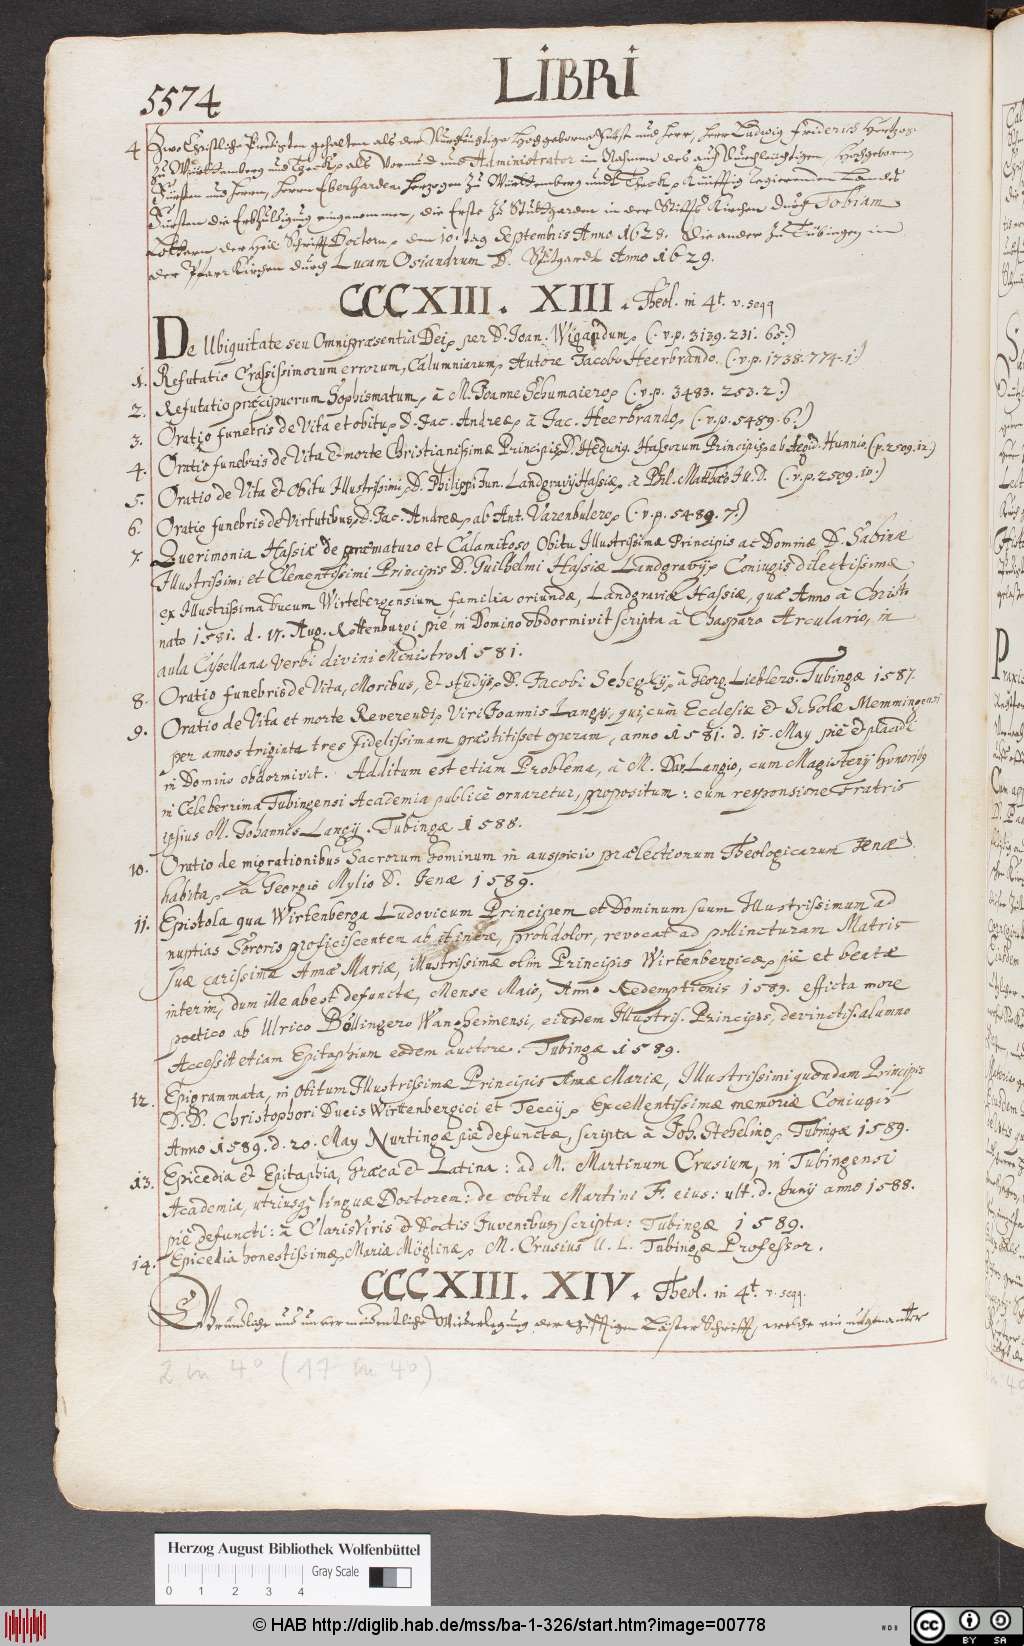 5574
LIBRI
4 Zwo Christliche Predigten gehalten als der Durchleüchtige Hochgeborne Fürst und Herr, Herr Ludwig Friderich Hertzog
zu Württemberg und Theckh, als Vormünd und Administrator im Nahmen des auch Durchleuchtigen, Hochgebornen,
Fürsten und Herren, Herrn Eberharden Hertzogen zu Württemberg undt Theckh, Künfftig Regierenden Landes
Fürsten die Erbhuldigung eingenommen, die Erste zu Stuttgarden in der Stiffts Kirchen durch Tobiam
Lothern der Heil. Schrifft Doctorn, den 10. tag Septembris Anno 1628. Die ander zu Tübingen in
der Pfarr Kirchen durch Lucam Osiandrum D. Stutgardt Anno 1629.
CCCXIII. XIII. Theol. in 4t. v. seqq
De Ubiquitate seu Omnipræsentia Dei, per D. Joan. Wigandum, (.v.p. 3139. 231. 65.)
1. Refutatio Crassissimorum errorum, Calumniarum, Autore Jacobo Heerbrando. (.v.p. 1738. 774. 1.)
2. Refutatio præcipuorum Sophismatum, à M. Joanne Schumaiero, (.v.p. 3483. 253. 2.)
3. Oratio funebris de Vita et obitu, D. Jac. Andreæ, à Jac. Heerbrando, (.v.p. 5489. 6.)
4. Oratio funebris de Vita & morte Christianissimæ Principis, D. Hedwig. Hassorum Principis, ab Aegid. Hunnio. (p. 2509. 12.)
5. Oratio de Vita et Obitu Illustrissimi, D. Philippi Jun. Landgravij Hassiæ, à Phil. Matthæo Ju. D. (.v.p. 2509. 10.)
6. Oratio funebris de Virtutibus, D. Jac. Andreæ, ab Ant. Varenbulero, (.v.p. 5489. 7.)
7. Querimonia Hassiæ de præmaturo et Calamitoso Obitu Illustrissimæ Principis ac Dominæ D. Sabinæ
Illustrissimi et Clementissimi Principis D. Guilhelmi Hassiæ Landgravij, Coniugis dilectissimæ
ex Illustrissima Ducum Wirtebergensium familia oriundæ, Landgraviæ Hassiæ, quæ Anno à Christo
nato 1581. d. 17. Aug. Rottenburgi pie in Domino obdormivit scripta à Chasparo Arculario, in
aula Cassellana Verbi divini Ministro 1581.
8. Oratio funebris de Vita, Moribus, et studijs, D. Jacobi Schegkij, à Georg. Lieblero. Tubingæ 1587.
9. Oratio de Vita et morte Reverendi, Viri Joannis Langij, qui, cum Ecclesiæ & Scholæ Memmingensi
per annos triginta tres fidelissimam præstitisset operam, anno 1581. d. 15. May pie & placide
in Domino obdormivit. Additum est etiam Problema, à M. Dav. Langio, cum Magisterij honorib9
in Celeberrima Tubingensi Academia publicè ornaretur, propositum: cum responsione Fratris
ipsius M. Johannis Langij. Tubingæ 1588.
10. Oratio de migrationibus Sacrorum hominum in auspicio prælectionum Theologicarum Jenæ
habita, à Georgio Mylio D. Jenæ 1589.
11. Epistola qua Wirtenberga Ludovicum Principem et Dominum suum Illustrissimum ad
nuptias Sororis proficiscentem ab itinere, proh dolor, revocat ad pollincturam Matris
suæ carissimæ Annæ Mariæ, illustrissimæ olim Principis Wirtenbergicæ, pie et beatæ
interim, dum ille abest defunctæ, Mense Maio, Anno Redemptionis 1589. efficta more
poetico ab Ulrico Bollingero Wangheimensi, eiusdem Illustriss. Principis, devinctiss. alumno
Accessit etiam Epitaphium eodem auctore. Tubingæ 1589.
12. Epigrammata, in Obitum Illustrissimæ Principis Annæ Mariæ, Illustrissimi quondam Principis
D. D. Christophori Ducis Wirttenbergici et Teccij, Excellentissimæ memoriæ Coniugis
Anno 1589. d. 20. May Nurtingæ pie defunctæ, scripta à Joh. Stehelino, Tubingæ 1589.
13. Epicedia & Epitaphia, Græca & Latina: ad M. Martinum Crusium, in Tubingensi
Academia, utriusq; linguæ Doctorem: de obitu Martini F. eius: ult. d. Junij anno 1588.
pie defuncti: à Claris Viris & Doctis Juvenibus scripta: Tubingæ 1589.
14. Epicedia honestissimæ, Mariæ Möglinæ, M. Crusius U. L. Tubingæ Professor.
CCCXIII. XIV. Theol. in 4t. v. seqq.
Gründliche und unvermeidentliche Widerlegung der Gifftigen Läster Schrifft, welche ein ungenanter
2 in 4° (17 in 4°)
Herzog August Bibliothek Wolfenbüttel
0 1 2 3 4
Gray Scale
© HAB http://diglib.hab.de/mss/ba-1-326/start.htm?image=00778
cc BY SA